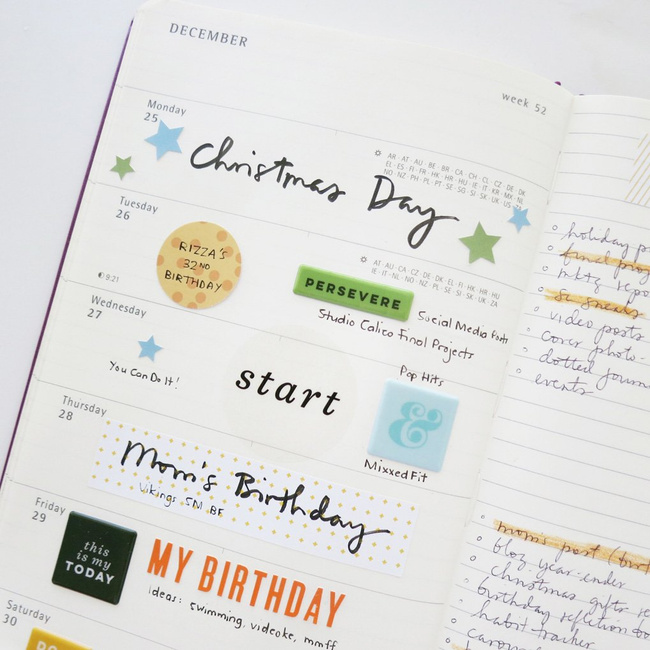 DECEMBER
week 52
Monday
25
Christmas Day
AR · AT · AU · BE · BR · CA · CH · CL · CZ · DE · DK
EL · ES · FI · FR · HK · HR · HU · IE · IT · KR · MX · NL
NO · NZ · PH · PL · PT · SE · SG · SI · SK · UK · US · ZA
Tuesday
26
RIZZA'S
32ND
BIRTHDAY
9:21
AT · AU · CA · CZ · DE · DK · EL · FI · HK · HR · HU
IE · IT · NL · NO · NZ · PL · SE · SI · SK · UK · ZA
PERSEVERE
Social Media Posts
Studio Calico Final Projects
Wednesday
27
You Can Do It!
start
Pop Hits
&
MixxedFit
Thursday
28
Mom's Birthday
Vikings SM BF
Friday
29
this
is my
TODAY
MY BIRTHDAY
ideas: swimming, videoke, mmff
Saturday
30
holiday
final
mktg repo
video posts
cover photo
dotted journ
events
mom's post (birt
blog year-ender
christmas gifts re
birthday refletion
habit tracker